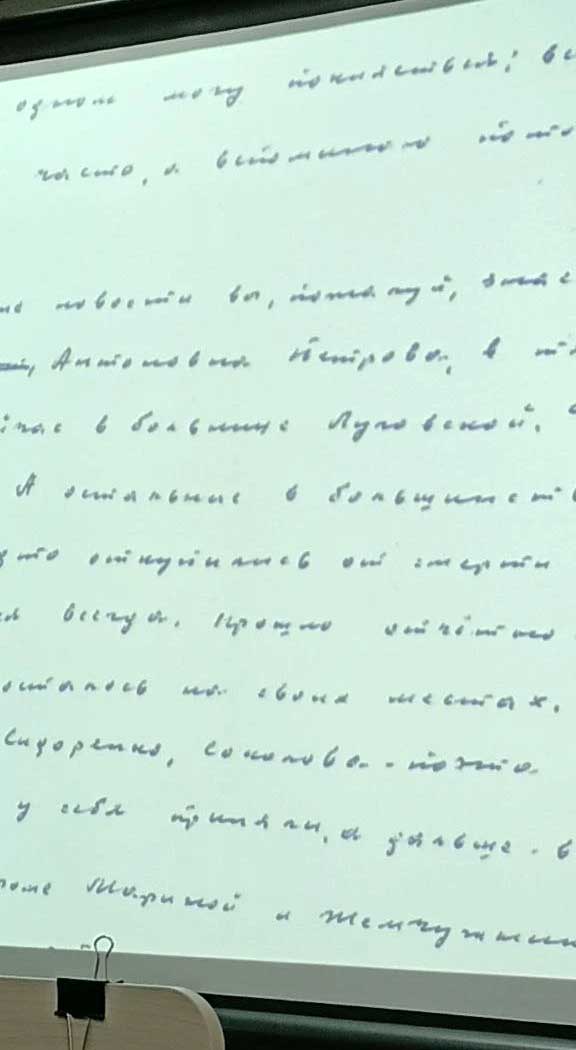 одном могу поклясться: вс
часто, а вспоминаю по
новости вы, пожалуй, знае
Антоновна Петрова, в
в больнице Луговской.
А остальные в большинств
откупились от смерти
всегда. Прошло
остались на своих местах.
Сидоренко, Соколова - поэто
у себя приняли, а дальше - в
роме Мариной и Жемчужни